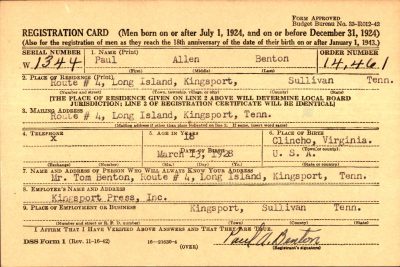 FORM APPROVED
Budget Bureau No. 33-R012-42
REGISTRATION CARD (Men born on or after July 1, 1924, and on or before December 31, 1924)
(Also for the registration of men as they reach the 18th anniversary of the date of their birth on or after January 1, 1943.)
SERIAL NUMBER 1. NAME (Print) ORDER NUMBER
W 1344 Paul Allen Benton 14,461
(First) (Middle) (Last)
2. PLACE OF RESIDENCE (Print)
Route # 4, Long Island, Kingsport, Sullivan Tenn.
(Number and street) (Town, township, village, or city) (County) (State)
[THE PLACE OF RESIDENCE GIVEN ON LINE 2 ABOVE WILL DETERMINE LOCAL BOARD
JURISDICTION; LINE 2 OF REGISTRATION CERTIFICATE WILL BE IDENTICAL]
3. MAILING ADDRESS
Route # 4, Long Island, Kingsport, Tenn.
(Mailing address if other than place indicated on line 2. If same, insert word same)
4. TELEPHONE 5. AGE IN YEARS 6. PLACE OF BIRTH
X 18 Clincho, Virginia.
DATE OF BIRTH (Town or county)
March 13, 1928 U. S. A.
(Exchange) (Number) (Mo.) (Day) (Yr.) (State or country)
7. NAME AND ADDRESS OF PERSON WHO WILL ALWAYS KNOW YOUR ADDRESS
Mr. Tom Benton, Route # 4, Long Island, Kingsport, Tenn.
8. EMPLOYER'S NAME AND ADDRESS
Kingsport Press, Inc.
9. PLACE OF EMPLOYMENT OR BUSINESS Kingsport, Sullivan Tenn.
(Number and street or R. F. D. number) (Town) (County) (State)
I AFFIRM THAT I HAVE VERIFIED ABOVE ANSWERS AND THAT THEY ARE TRUE.
DSS Form 1 (Rev. 11-16-42) 16-21630-4 Paul A. Benton
(OVER) (Registrant's signature)